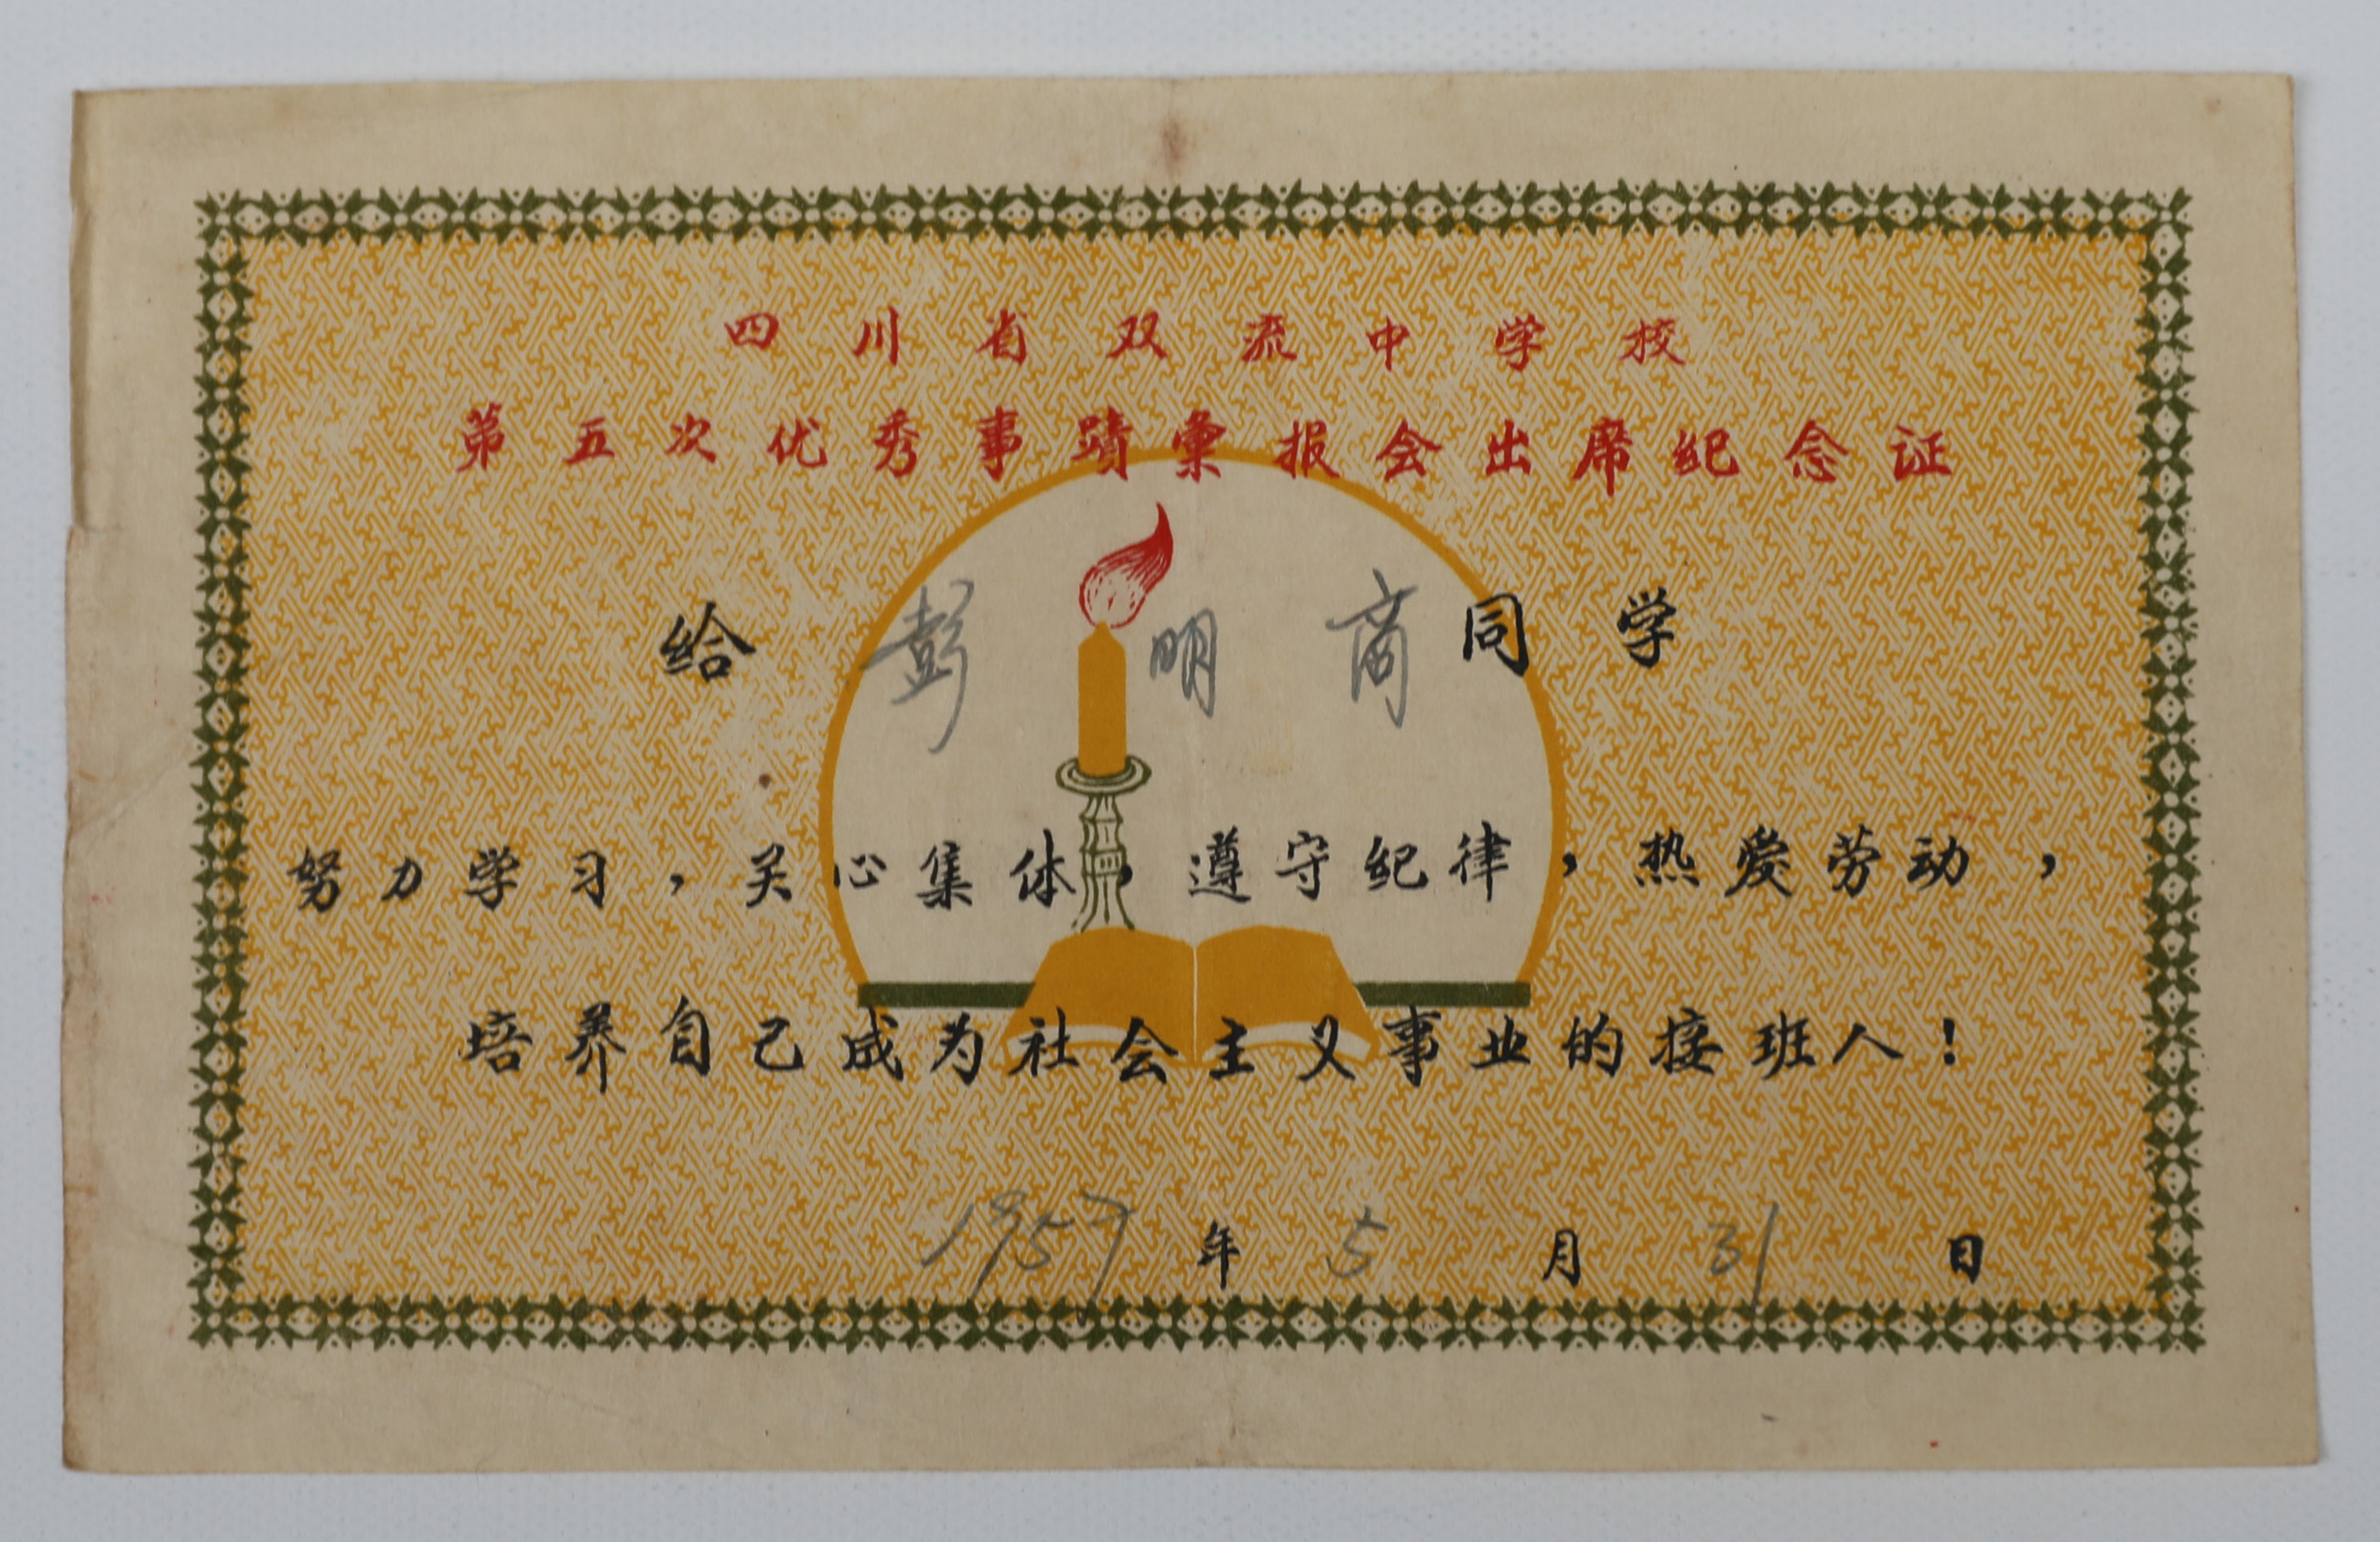 四川省双流中学校
第五次优秀事蹟彙报会出席纪念证
给彭明商同学
努力学习，关心集体，遵守纪律，热爱劳动，
培养自己成为社会主义事业的接班人！
1957年5月31日